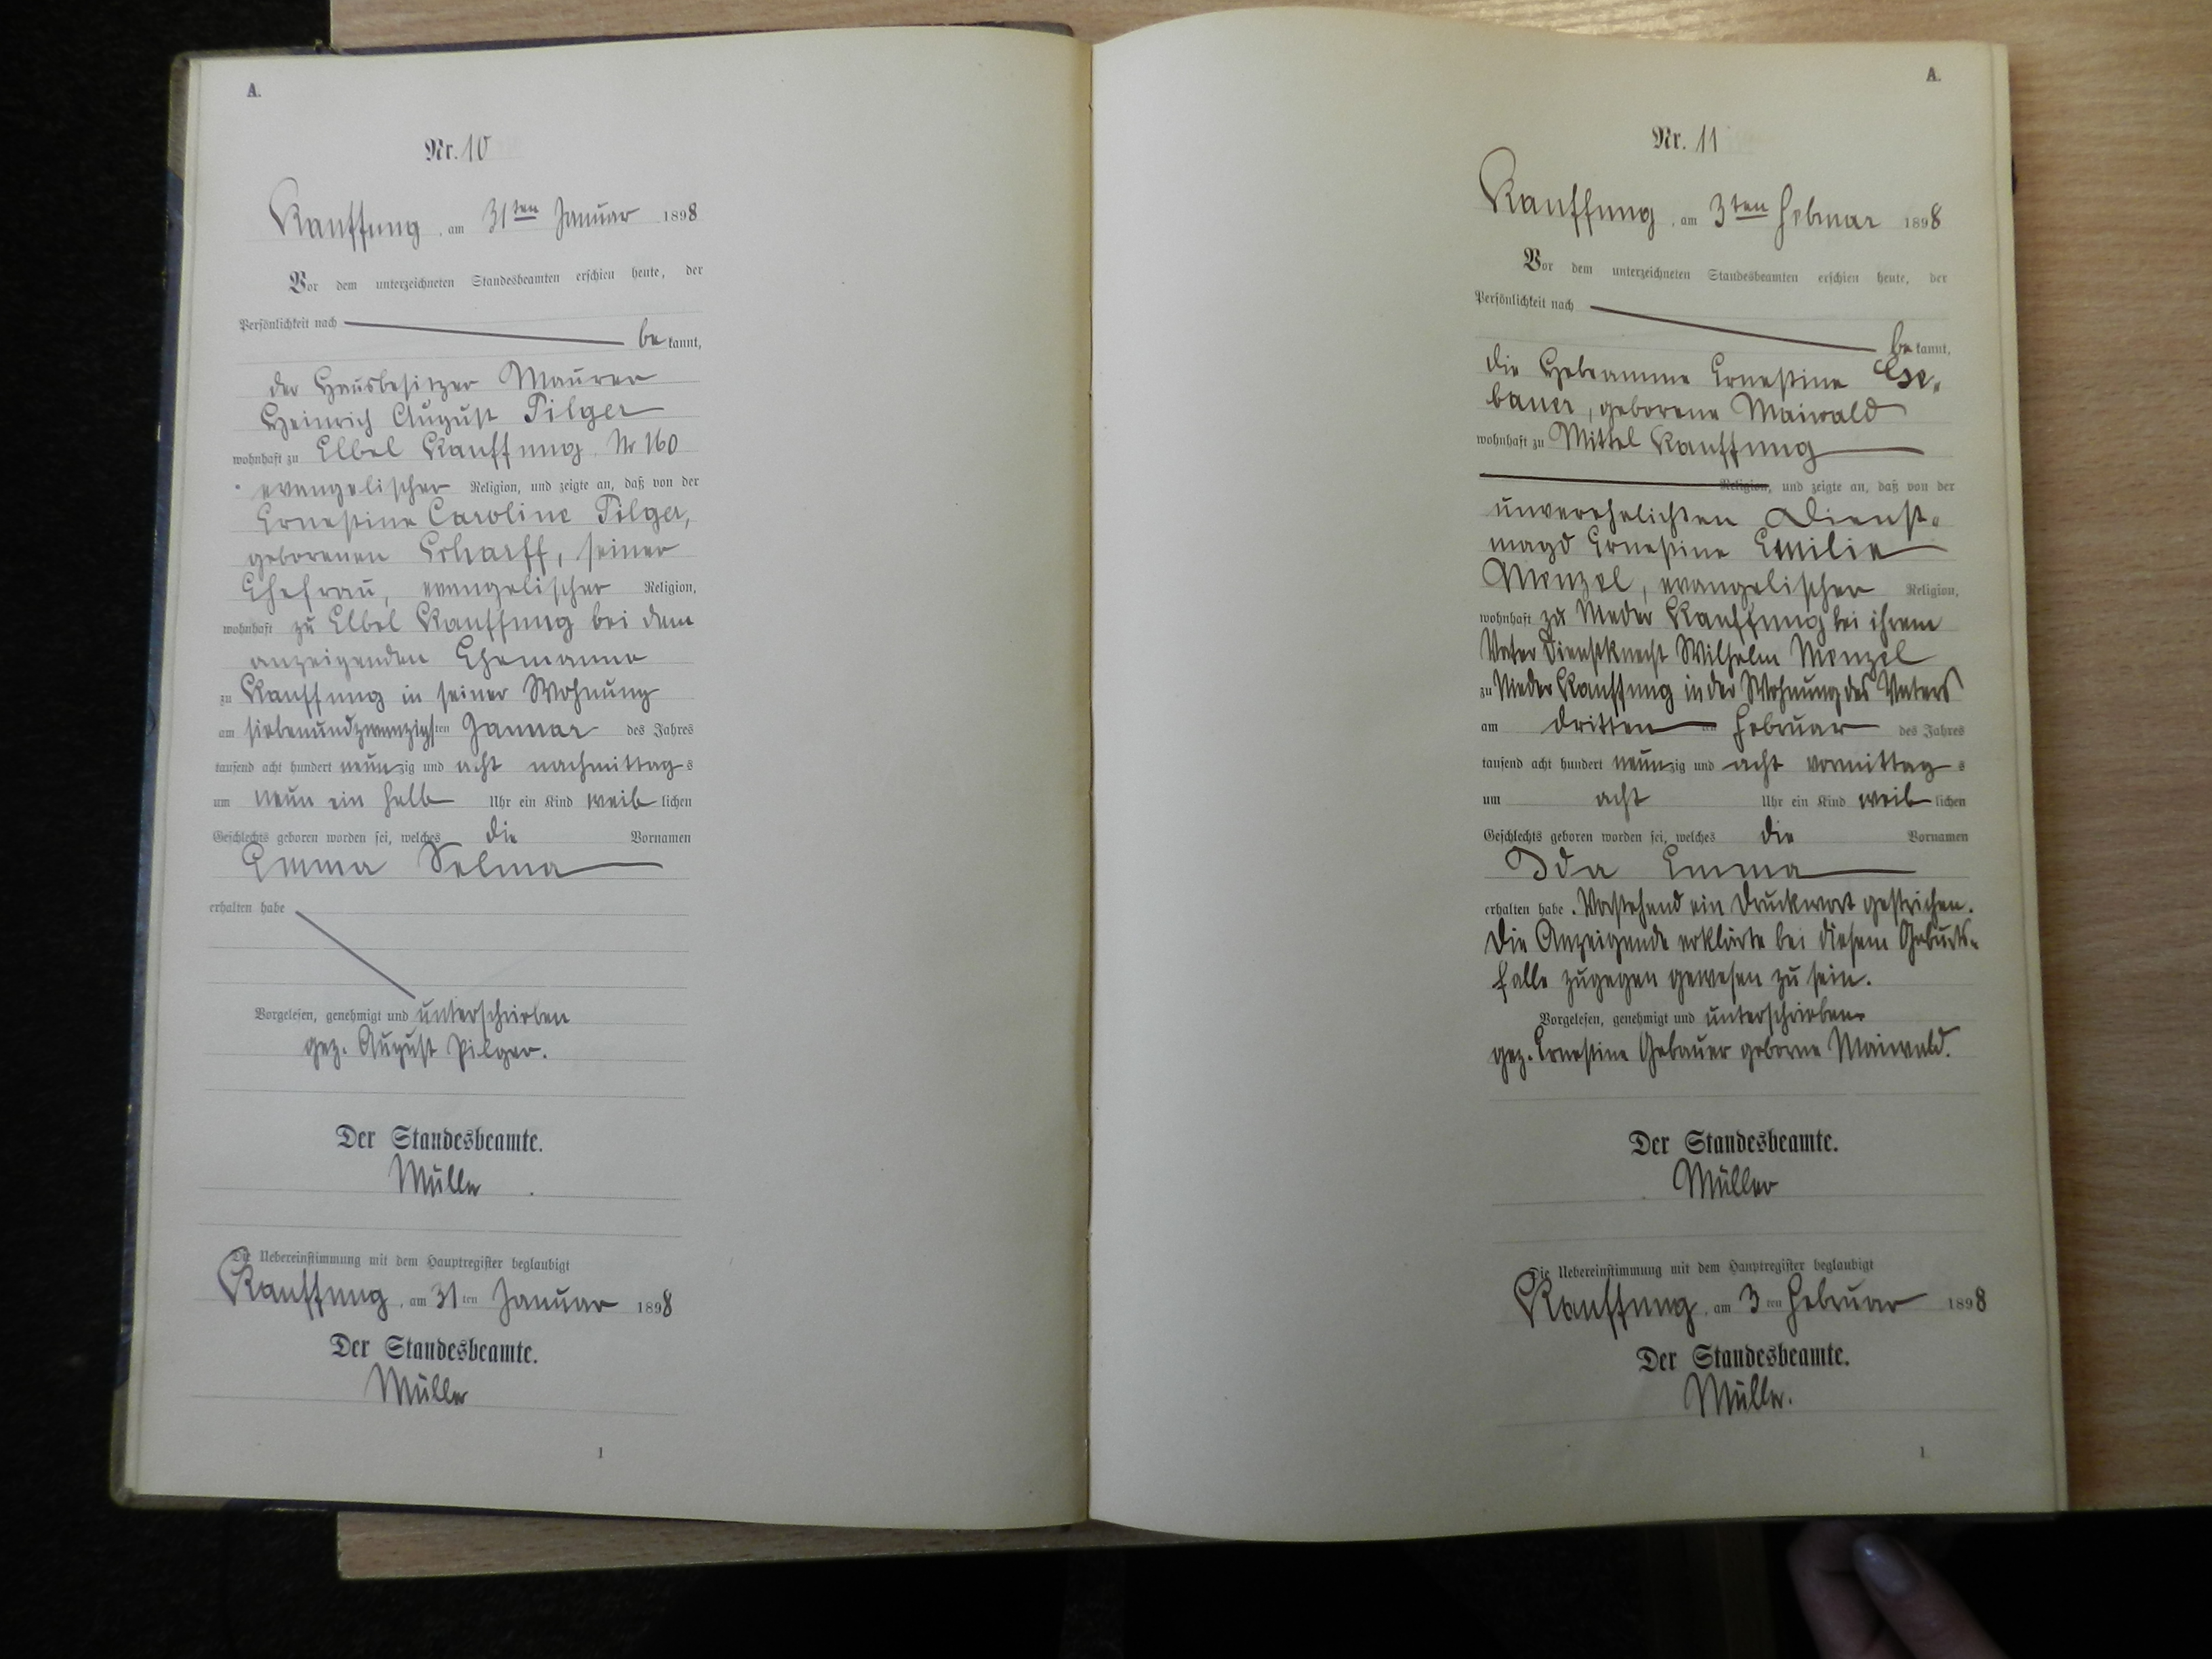 A.
Nr. 10
Kauffung, am 31ten Januar 1898
Vor dem unterzeichneten Standesbeamten erschien heute, der
Persönlichkeit nach
bekannt,
der Hausbesitzer Maurer
Heinrich August Pilger
wohnhaft zu Elbel Kauffung Nr 160
evangelischer Religion, und zeigte an, daß von der
Ernestine Caroline Pilger,
geborenen Scharff, seiner
Ehefrau, evangelischer Religion,
wohnhaft zu Elbel Kauffung bei dem
anzeigenden Ehemanne
zu Kauffung in seiner Wohnung
am siebenundzwanzigsten Januar des Jahres
tausend acht hundert neunzig und acht nachmittags
um neun ein halb Uhr ein Kind weiblichen
Geschlechts geboren worden sei, welches die Vornamen
Emma Selma
erhalten habe
Vorgelesen, genehmigt und unterschrieben
gez. August Pilger.
Der Standesbeamte.
Müller
Die Uebereinstimmung mit dem Hauptregister beglaubigt
Kauffung, am 31ten Januar 1898
Der Standesbeamte.
Müller
1
A.
Nr. 11
Kauffung, am 3ten Februar 1898
Vor dem unterzeichneten Standesbeamten erschien heute, der
Persönlichkeit nach
bekannt,
die Hebeamme Ernestine Ge-
bauer, geborene Maiwald
wohnhaft zu Mittel Kauffung
Religion, und zeigte an, daß von der
unverehelichten Dienst-
magd Ernestine Emilie
Menzel, evangelischer Religion,
wohnhaft zu Nieder Kauffung bei ihrem
Vater Dienstknecht Wilhelm Menzel
zu Nieder Kauffung in der Wohnung des Vaters
am dritten Februar des Jahres
tausend acht hundert neunzig und acht vormittags
um acht Uhr ein Kind weiblichen
Geschlechts geboren worden sei, welches die Vornamen
Ida Emma
erhalten habe. Vorstehend ein Druckwort gestrichen.
Die Anzeigende erklärte bei diesem Geburts-
falle zugegen gewesen zu sein.
Vorgelesen, genehmigt und unterschrieben
gez. Ernestine Gebauer geborne Maiwald.
Der Standesbeamte.
Müller
Die Uebereinstimmung mit dem Hauptregister beglaubigt
Kauffung, am 3ten Februar 1898
Der Standesbeamte.
Müller.
1